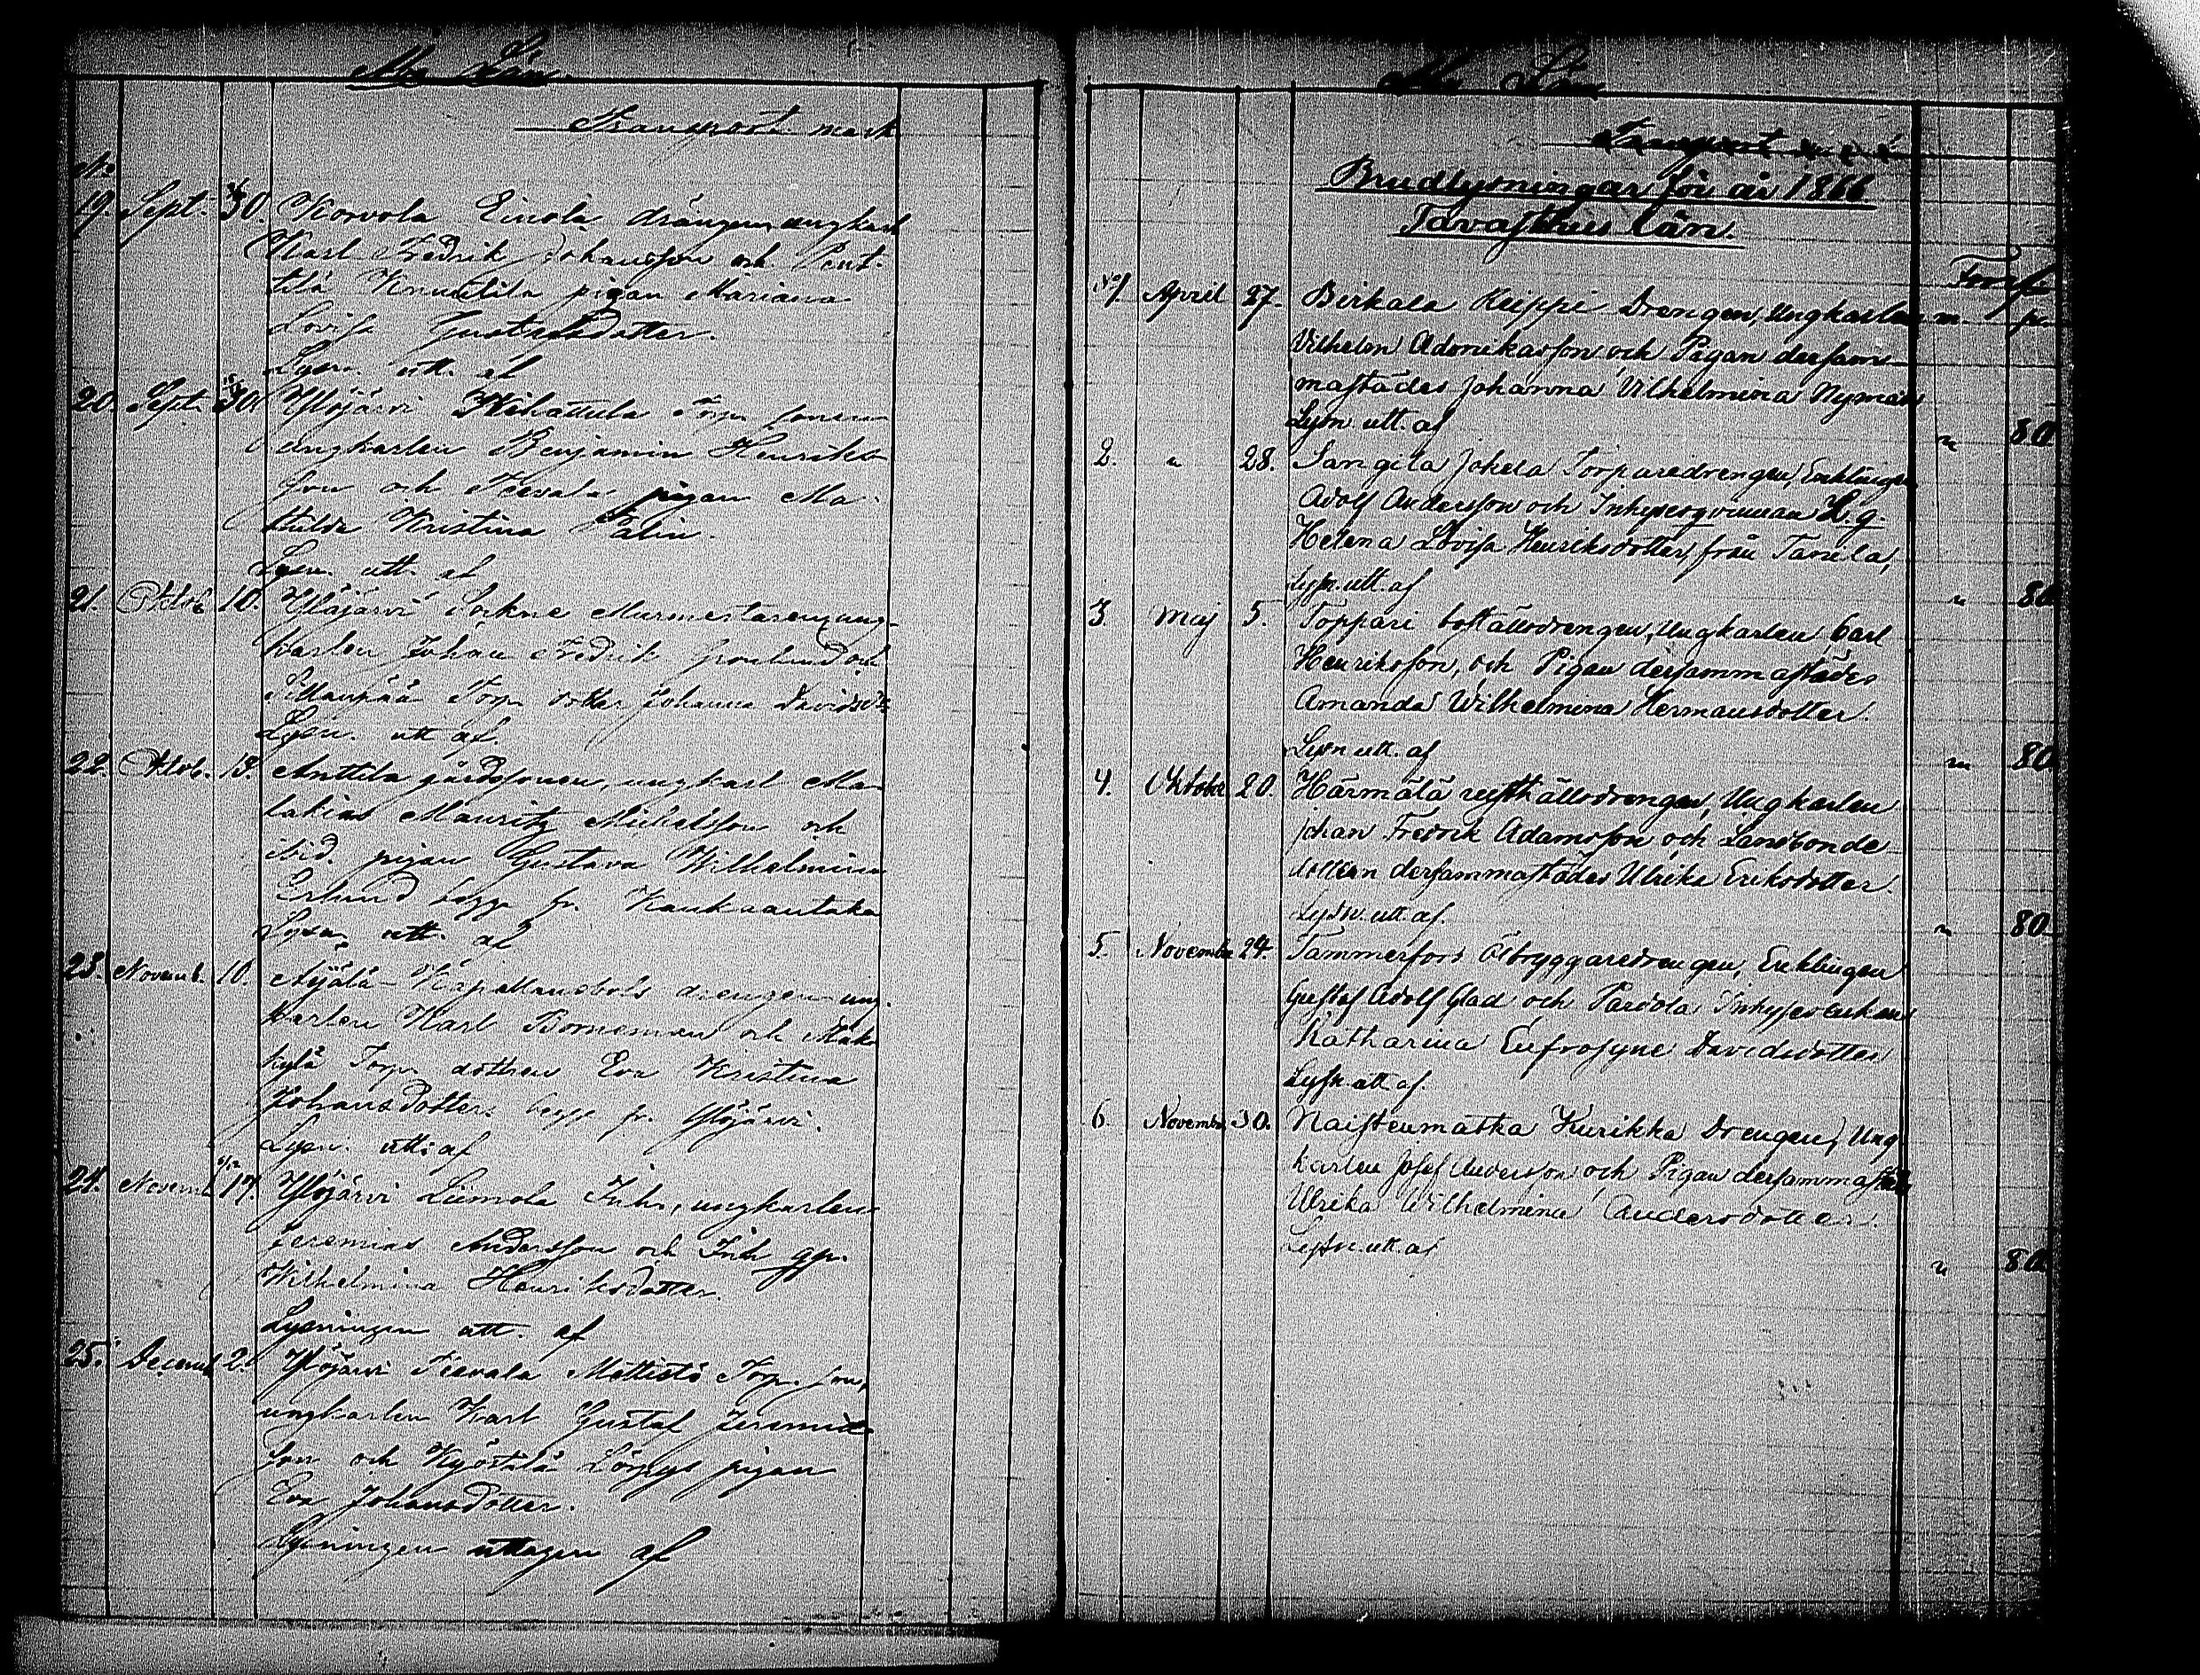 Åbo Län.
Transport mark
No
19. Sept. 30. Korvola Einola drängen, ungkarl
Karl Fredrik Johansson och Pent-
tilä Knuutila pigan Mariana
Lovisa Gustafsdotter.
Lysn. utt. af
20. Sept. 30. Ylöjärvi Wihattula Torp. sonen
ungkarlen Benjamin Henriks-
son och Teevala pigan Ma-
thilda Kristina Palin.
Lysn. utt. af
21. Oktob. 10. Ylöjärvi Sockne Murmestaren, ung-
karlen Johan Fredrik Grönlund och
Sillanpää Torp. dotter Johanna Davidsdr
Lysn. utt af.
22. Oktob. 13. Anttila gårdssonen, ungkarl Ma-
lakias Mauritz Mickelsson och
ibid. pigan Gustava Wilhelmina
Erlund begge fr. Kaukaantaka
Lysn. utt. af
23. Novemb. 10. Äijälä-Kapellansbols drengen ung-
karlen Karl Borneman och Mäk-
kylä Torp. dottren Eva Kristina
Johansdotter begge fr. Ylöjärvi.
Lysn. utt: af
24. Novemb 17. Ylöjärvi Liimola Inh., ungkarlen
Jeremias Andersson och Inh. gp.
Wilhelmina Henriksdotter.
Lysningen utt. af
25. Decemb 2. Ylöjärvi Teevala Mettistö Torp. son,
ungkarlen Karl Gustaf Jeremias-
son och Kyöstilä Löpys pigan
Eva Johansdotter.
Lysningen uttagen af
Åbo Län
Transport
Brudlysningar för år 1866
Tavasthus län.
No 1 April 27. Birkala Keippi Drengen, Ungkarlen m. p.
Vilhelm Adamikasson och Pigan dersam-
mastädes Johanna Vilhelmina Nyman
Lysn utt. af " 80
2. " 28. Sangila Jokela Torparedrengen, Enklingen
Adolf Andersson och Inhysesqvinnan L. q.
Helena Lovisa Henriksdotter från Tanila,
Lysn. utt. af " 80
3 Maj 5. Toppari boställsdrengen, Ungkarlen Carl
Henriksson, och Pigan dersammastädes
Amanda Wilhelmina Hermansdotter.
Lysn utt. af " 80
4. Oktober 20. Härmälä rusthållsdrengen, Ungkarlen
Johan Fredrik Adamsson och Landbonde
dottren dersammastädes Ulrika Eriksdotter.
Lysn. utt. af. " 80
5. November 24. Tammerfors Ölbryggaredrengen, Enklingen
Gustaf Adolf Glad och Pardola Inhysesenkan
Katharina Eufrosyne Davidsdotter
Lysn. utt. af.
6. November 30. Naistenmatka Kurikka Drengen, Ung-
karlen Josef Andersson och Pigan dersammastädes
Ulrika Wilhelmina Andersdotter.
Lysn. utt. af " 80